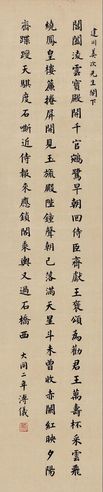 建川美次先生閣下
閶闔凌雲寶殿開千官鵷鷺早朝回侍臣齊獻王褒頌為勸君王萬壽杯采雲飛
繞鳳皇樓簾捲屏開見玉旒殿陛鐘聲朝已落滿天星斗未曾收赤闌紅映夕陽
天騏度石
近侍報來應鎖閣乘輿又過石橋西
大同二年溥儀